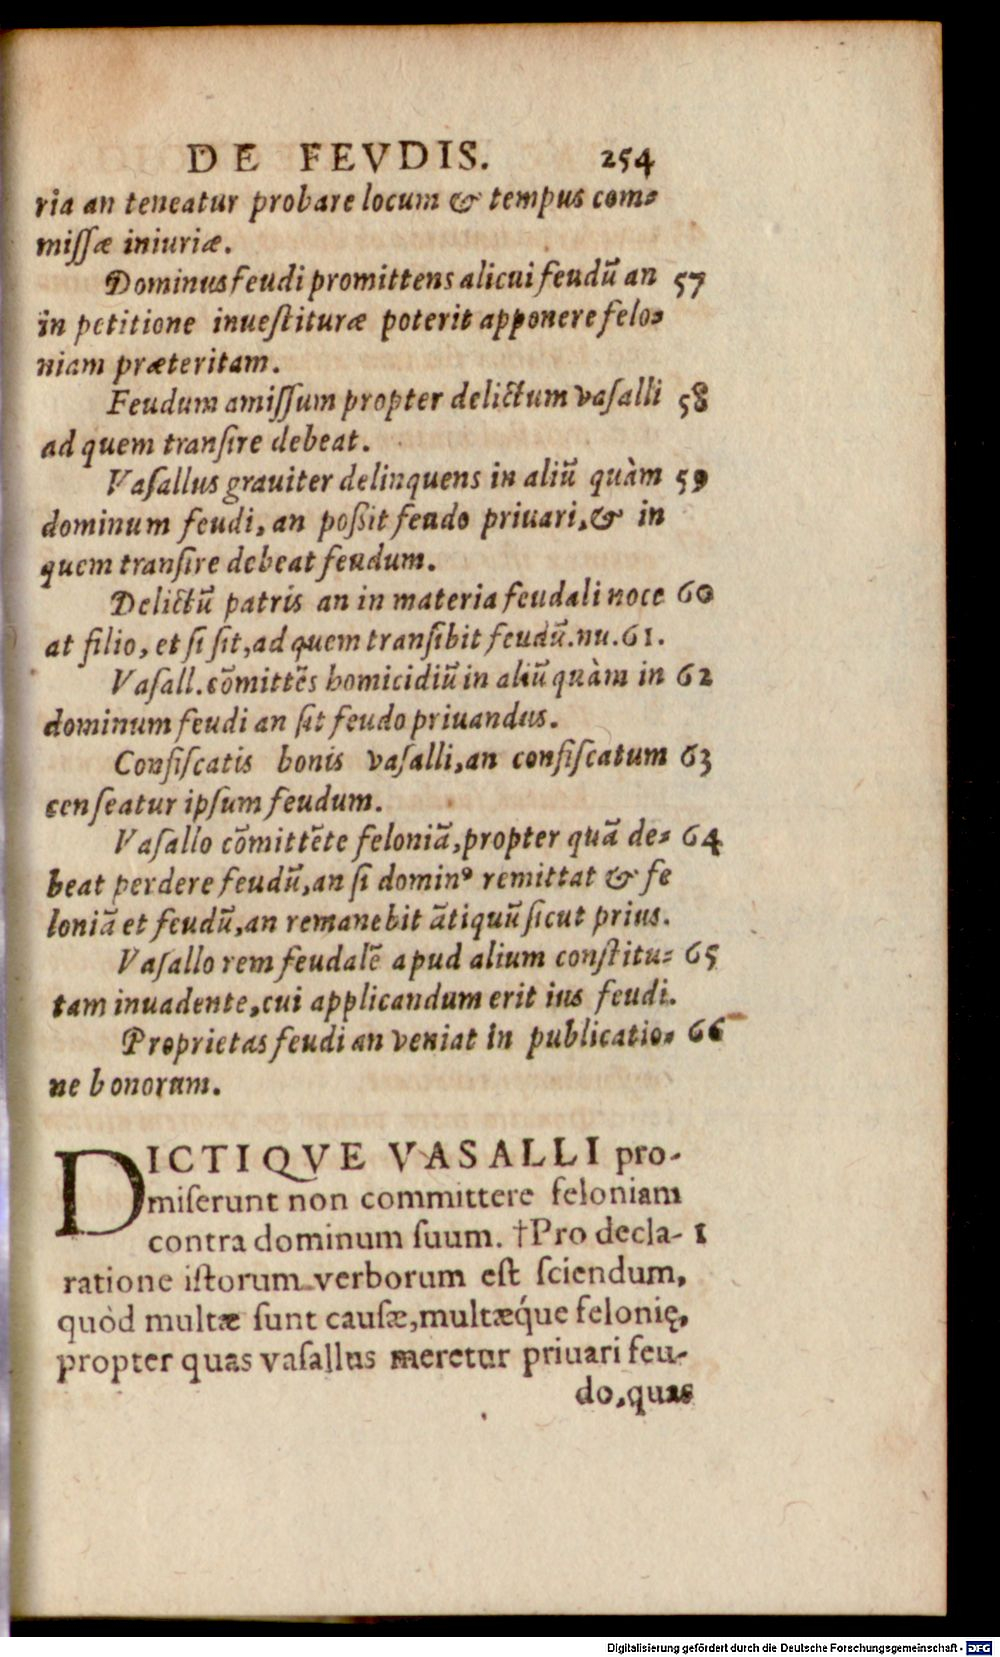 DE FEVDIS. 254
ria an teneatur probare locum & tempus com⸗
miſſæ iniuriæ.
Dominus feudi promittens alicui feudū an 57
in petitione inueſtituræ poterit apponere felo⸗
niam præteritam.
Feudum amiſſum propter delictum vaſalli 58
ad quem tranſire debeat.
Vaſallus grauiter delinquens in aliū quàm 59
dominum feudi, an poßit feudo priuari, & in
quem tranſire debeat feudum.
Delictū patris an in materia feudali noce 60
at filio, et ſi ſit, ad quem tranſibit feudū. nu. 61.
Vaſall. cōmittēs homicidiū in aliū quàm in 62
dominum feudi an ſit feudo priuandus.
Confiſcatis bonis vaſalli, an confiſcatum 63
cenſeatur ipſum feudum.
Vaſallo cōmittēte feloniā, propter quā de⸗ 64
beat perdere feudū, an ſi dominꝰ remittat & fe
loniā et feudū, an remanebit ātiquū ſicut prius.
Vaſallo rem feudalē apud alium conſtitu⸗ 65
tam inuadente, cui applicandum erit ius feudi.
Proprietas feudi an veniat in publicatio⸗ 66
ne bonorum.
DICTIQVE VASALLI pro-
miſerunt non committere feloniam
contra dominum ſuum. †Pro decla- 1
ratione iſtorum verborum eſt ſciendum,
quòd multæ ſunt cauſæ, multæq́ue felonię,
propter quas vaſallus meretur priuari feu-
do, quas
Digitalisierung gefördert durch die Deutsche Forschungsgemeinschaft - DFG